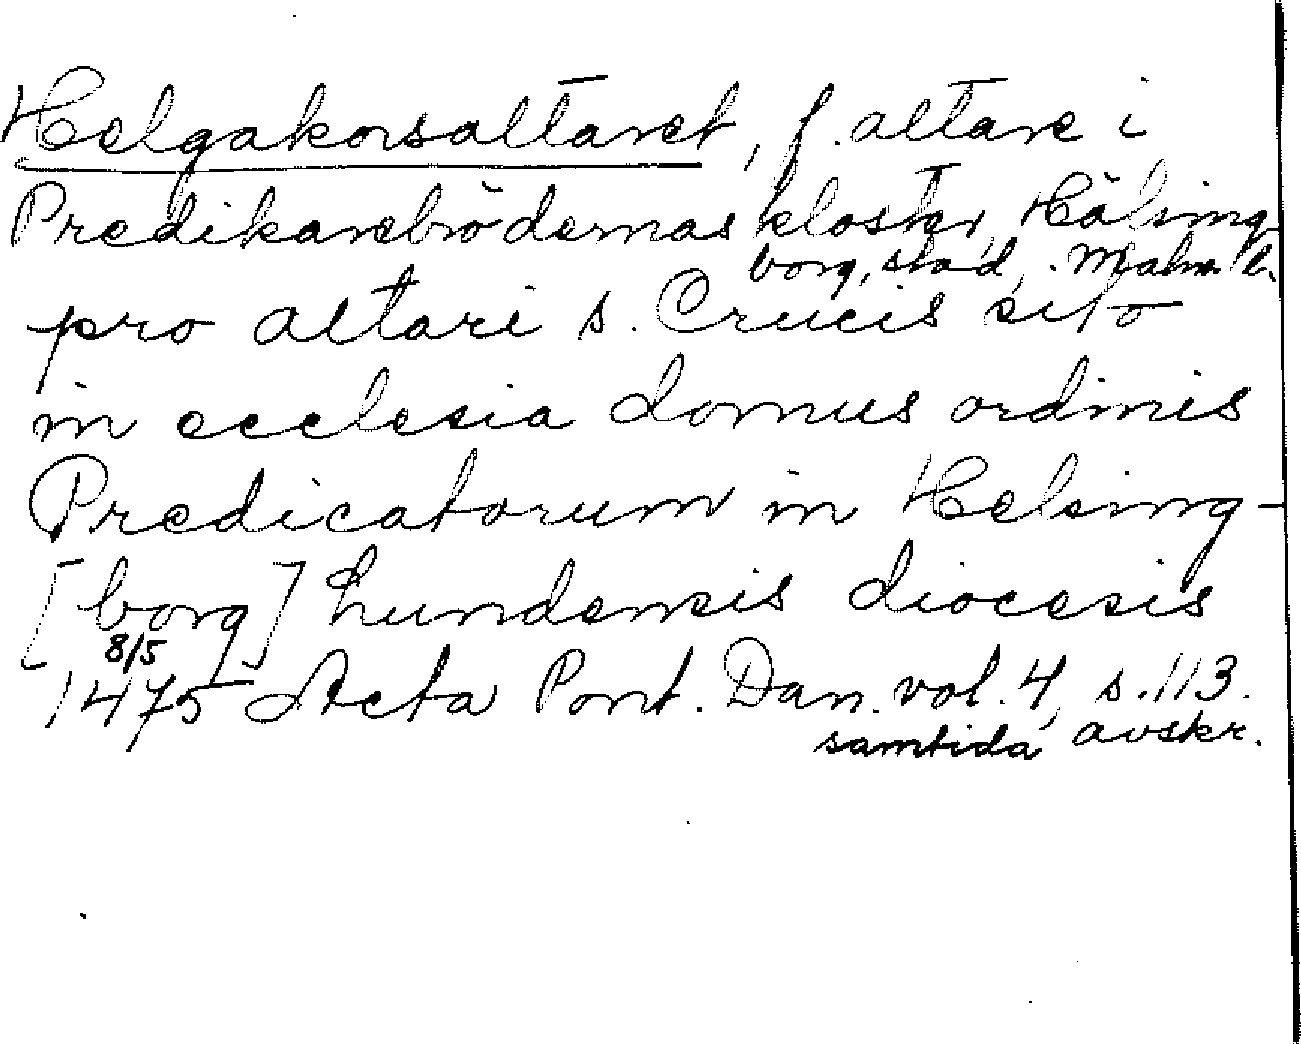 Helgakorsaltaret, f. altare i
Predikarebrödernas kloster, Hälsing-
borg, stad, Malm. l.
pro altari s. Crucis sito
in ecclesia domus ordinis
Predicatorum in Helsing-
[borg] Lundensis diocesis
8/5
1475 Acta Pont. Dan. vol. 4, s. 113.
samtida avskr.